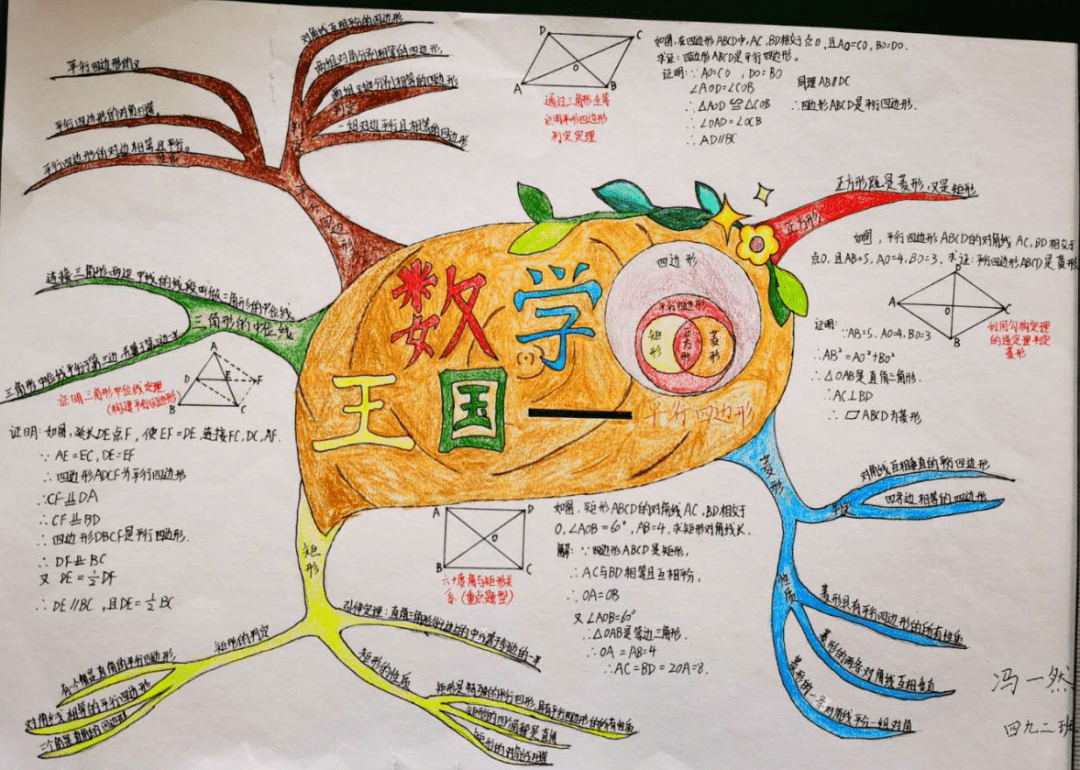 对角线互相平分的四边形
两组对角分别相等的四边形
两组对边分别相等的四边形
一组对边平行且相等的四边形
平行四边形的
平行四边形的对角相等。
平行四边形的对边相等且平行。
四边形
D
C
O
A
B
通过三角形全等
证明平行四边形
判定定理
如图,在四边形ABCD中,AC,BD相交于点O,且AO=CO,BO=DO.
求证:四边形ABCD是平行四边形.
证明:∵AO=CO,DO=BO
∠AOD=∠COB
∴△AOD≌△COB
∴∠OAD=∠OCB
∴AD∥BC
同理AB∥DC
∴四边形ABCD是平行四边形.
正方形既是菱形,又是矩形
正方形
如图,平行四边形ABCD的对角线AC,BD相交于
点O,且AB=5,AO=4,BO=3,求证:平行四边形ABCD是菱形
D
A
O
C
B
利用勾股定理
的逆定理判定
菱形
证明:∵AB=5,AO=4,BO=3
∴AB²=AO²+BO²
∴△OAB是直角三角形.
∴AC⊥BD
∴▱ABCD为菱形
数学
王国
——平行四边形
四边形
平行四边形
矩形
正方形
菱形
连接三角形两边中线的线段叫做三角形的中位线
三角形的中位线
三角形中位线平行于第三边,
A
D
E
F
B
C
证明三角形中位线定理
(构建平行四边形)
证明:如图,延长DE点F,使EF=DE,连接FC,DC,AF.
∵AE=EC,DE=EF
∴四边形ADCF为平行四边形
∴CF⫫DA
∴CF⫫BD
∴四边形DBCF是平行四边形.
∴DF⫫BC
又DE=½DF
∴DE∥BC,且DE=½BC
A
D
O
B
C
六十度角与矩形关
系(重点题型)
如图,矩形ABCD的对角线AC,BD相交于
O,∠AOB=60°,AB=4,求矩形对角线长.
解:∵四边形ABCD是矩形,
∴AC与BD相等且互相平分,
∴OA=OB
又∠AOB=60°
∴△OAB是等边三角形.
∴OA=AB=4
∴AC=BD=2OA=8.
菱形
判定
对角线互相垂直的平行四边形
四条边相等的四边形
性质
菱形具有平行四边形的所有性质
菱形的两条对角线互相垂直
菱形的一条对角线平分一组对角
矩形
引伸定理:直角三角形斜边上的中线等于斜边的一半
矩形的判定
有一个角是直角的平行四边形
对角线相等的平行四边形
三个角是直角的四边形
矩形的性质
矩形是特殊的平行四边形,具有平行四边形的所有性质
矩形的四个角都是直角
矩形的对角线相等
冯一然
四九二班